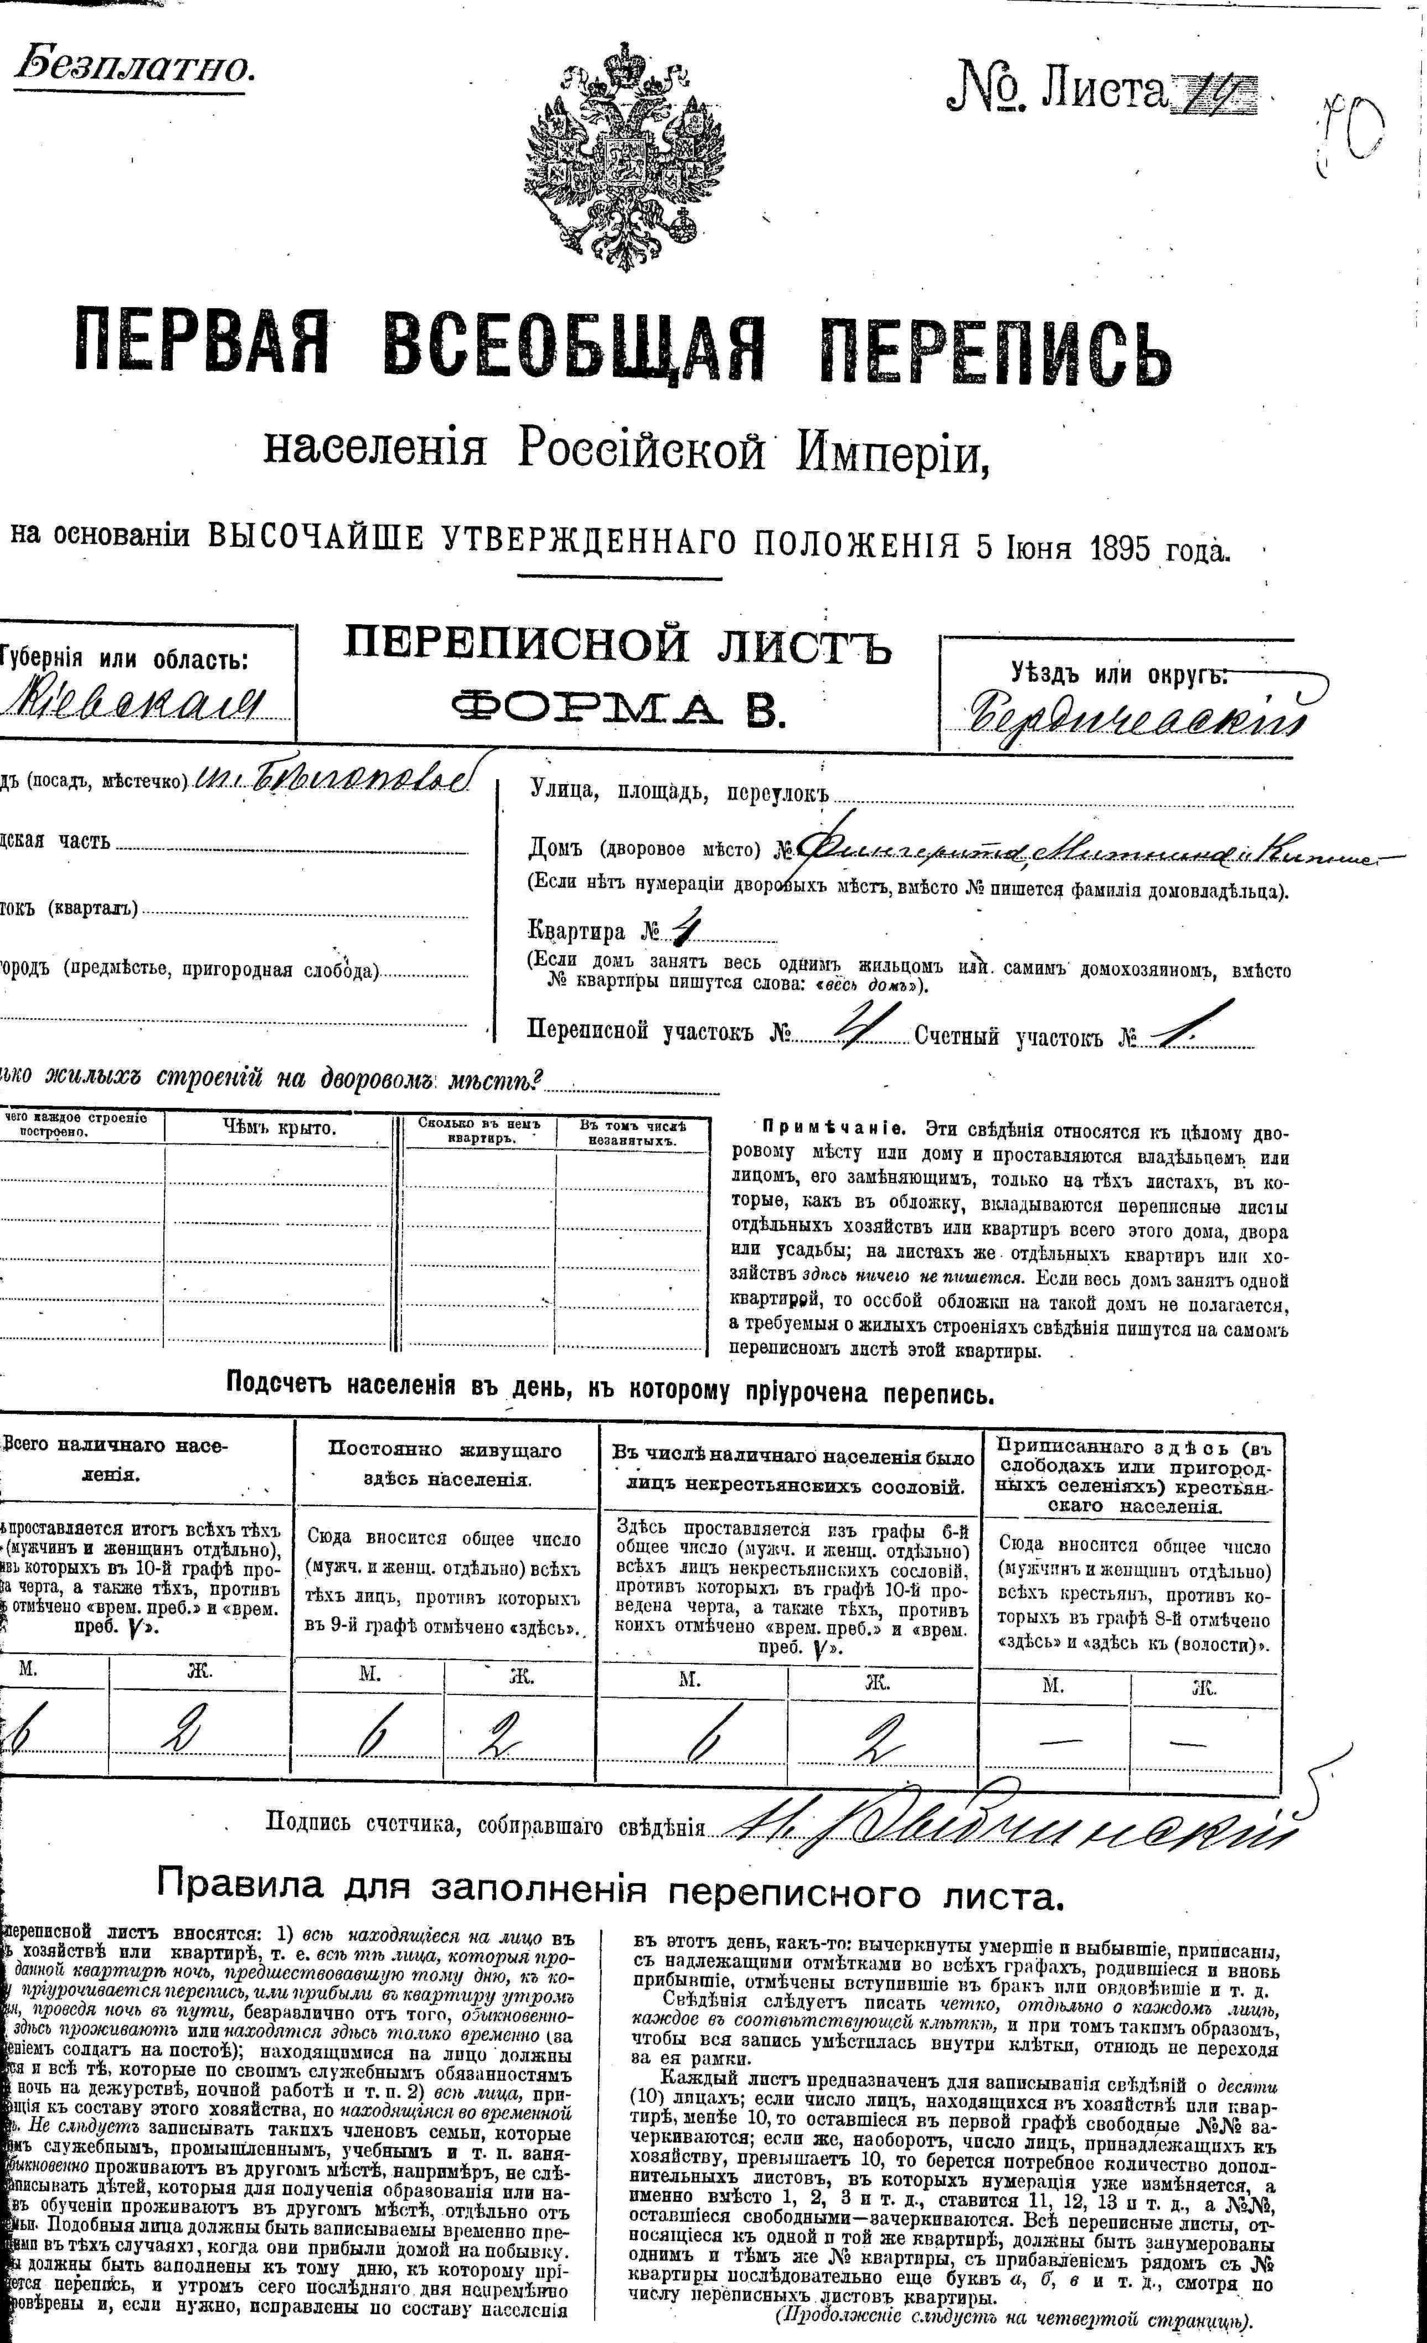 Безплатно.
№. Листа 14
70
ПЕРВАЯ ВСЕОБЩАЯ ПЕРЕПИСЬ
населенія Россійской Имперіи,
на основаніи ВЫСОЧАЙШЕ УТВЕРЖДЕННАГО ПОЛОЖЕНІЯ 5 Іюня 1895 года.
Губернія или область:
Кіевская
ПЕРЕПИСНОЙ ЛИСТЪ
ФОРМА В.
Уѣздъ или округъ:
Бердичевскій
дъ (посадъ, мѣстечко) м.
дская часть
токъ (кварталъ)
городъ (предмѣстье, пригородная слобода)
Улица, площадь, переулокъ
Домъ (дворовое мѣсто) №
(Если нѣтъ нумераціи дворовыхъ мѣстъ, вмѣсто № пишется фамилія домовладѣльца).
Квартира № 4
(Если домъ занятъ весь однимъ жильцомъ или самимъ домохозяиномъ, вмѣсто
№ квартиры пишутся слова: «весь домъ»).
Переписной участокъ № 4 Счетный участокъ № 1.
ько жилыхъ строеній на дворовомъ мѣстѣ?
чего каждое строеніе
построено.
Чѣмъ крыто.
Сколько въ немъ
квартиръ.
Въ томъ числѣ
незанятыхъ.
Примѣчаніе. Эти свѣдѣнія относятся къ цѣлому дво-
ровому мѣсту или дому и проставляются владѣльцемъ или
лицомъ, его замѣняющимъ, только на тѣхъ листахъ, въ ко-
торые, какъ въ обложку, вкладываются переписные листы
отдѣльныхъ хозяйствъ или квартиръ всего этого дома, двора
или усадьбы; на листахъ же отдѣльныхъ квартиръ или хо-
зяйствъ здѣсь ничего не пишется. Если весь домъ занятъ одной
квартирой, то особой обложки на такой домъ не полагается,
а требуемыя о жилыхъ строеніяхъ свѣдѣнія пишутся на самомъ
переписномъ листѣ этой квартиры.
Подсчетъ населенія въ день, къ которому пріурочена перепись.
Всего наличнаго насе-
ленія.
ь проставляется итогъ всѣхъ тѣхъ
(мужчинъ и женщинъ отдѣльно),
ивъ которыхъ въ 10-й графѣ про-
а черта, а также тѣхъ, противъ
отмѣчено «врем. преб.» и «врем.
преб. V».
Постоянно живущаго
здѣсь населенія.
Сюда вносится общее число
(мужч. и женщ. отдѣльно) всѣхъ
тѣхъ лицъ, противъ которыхъ
въ 9-й графѣ отмѣчено «здѣсь».
Въ числѣ наличнаго населенія было
лицъ некрестьянскихъ сословій.
Здѣсь проставляется изъ графы 6-й
общее число (мужч. и женщ. отдѣльно)
всѣхъ лицъ некрестьянскихъ сословій,
противъ которыхъ въ графѣ 10-й про-
ведена черта, а также тѣхъ, противъ
коихъ отмѣчено «врем. преб.» и «врем.
преб. V».
Приписаннаго здѣсь (въ
слободахъ или пригород-
ныхъ селеніяхъ) крестьян-
скаго населенія.
Сюда вносится общее число
(мужчинъ и женщинъ отдѣльно)
всѣхъ крестьянъ, противъ ко-
торыхъ въ графѣ 8-й отмѣчено
«здѣсь» и «здѣсь къ (волости)».
М. Ж. М. Ж. М. Ж. М. Ж.
6 2 6 2 6 2 — —
Подпись счетчика, собиравшаго свѣдѣнія
Правила для заполненія переписного листа.
переписной листъ вносятся: 1) всѣ находящіеся на лицо въ
ъ хозяйствѣ или квартирѣ, т. е. всѣ тѣ лица, которыя про-
данной квартирѣ ночь, предшествовавшую тому дню, къ ко-
у пріурочивается перепись, или прибыли въ квартиру утромъ
ня, проведя ночь въ пути, безразлично отъ того, обыкновенно-
здѣсь проживаютъ или находятся здѣсь только временно (за
еніемъ солдатъ на постоѣ); находящимися на лицо должны
ся и всѣ тѣ, которые по своимъ служебнымъ обязанностямъ
ночь на дежурствѣ, ночной работѣ и т. п. 2) всѣ лица, при-
щія къ составу этого хозяйства, но находящіяся во временной
ѣ. Не слѣдуетъ записывать такихъ членовъ семьи, которые
имъ служебнымъ, промышленнымъ, учебнымъ и т. п. заня-
быкновенно проживаютъ въ другомъ мѣстѣ, напримѣръ, не слѣ-
аписывать дѣтей, которыя для полученія образованія или на-
въ обученіи проживаютъ въ другомъ мѣстѣ, отдѣльно отъ
ьи. Подобныя лица должны быть записываемы временно пре-
ими въ тѣхъ случаяхъ, когда они прибыли домой на побывку.
ы должны быть заполнены къ тому дню, къ которому прі-
ется перепись, и утромъ сего послѣдняго дня непремѣнно
овѣрены и, если нужно, исправлены по составу населенія
въ этотъ день, какъ-то: вычеркнуты умершіе и выбывшіе, приписаны,
съ надлежащими отмѣтками во всѣхъ графахъ, родившіеся и вновь
прибывшіе, отмѣчены вступившіе въ бракъ или овдовѣвшіе и т. д.
Свѣдѣнія слѣдуетъ писать четко, отдѣльно о каждомъ лицѣ,
каждое въ соотвѣтствующей клѣткѣ, и при томъ такимъ образомъ,
чтобы вся запись умѣстилась внутри клѣтки, отнюдь не переходя
за ея рамки.
Каждый листъ предназначенъ для записыванія свѣдѣній о десяти
(10) лицахъ; если число лицъ, находящихся въ хозяйствѣ или квар-
тирѣ, менѣе 10, то оставшіеся въ первой графѣ свободные №№ за-
черкиваются; если же, наоборотъ, число лицъ, принадлежащихъ къ
хозяйству, превышаетъ 10, то берется потребное количество допол-
нительныхъ листовъ, въ которыхъ нумерація уже измѣняется, а
именно вмѣсто 1, 2, 3 и т. д., ставится 11, 12, 13 и т. д., а №№,
оставшіеся свободными—зачеркиваются. Всѣ переписные листы, от-
носящіеся къ одной и той же квартирѣ, должны быть занумерованы
однимъ и тѣмъ же № квартиры, съ прибавленіемъ рядомъ съ №
квартиры послѣдовательно еще буквъ а, б, в и т. д., смотря по
числу переписныхъ листовъ квартиры.
(Продолженіе слѣдуетъ на четвертой страницѣ).